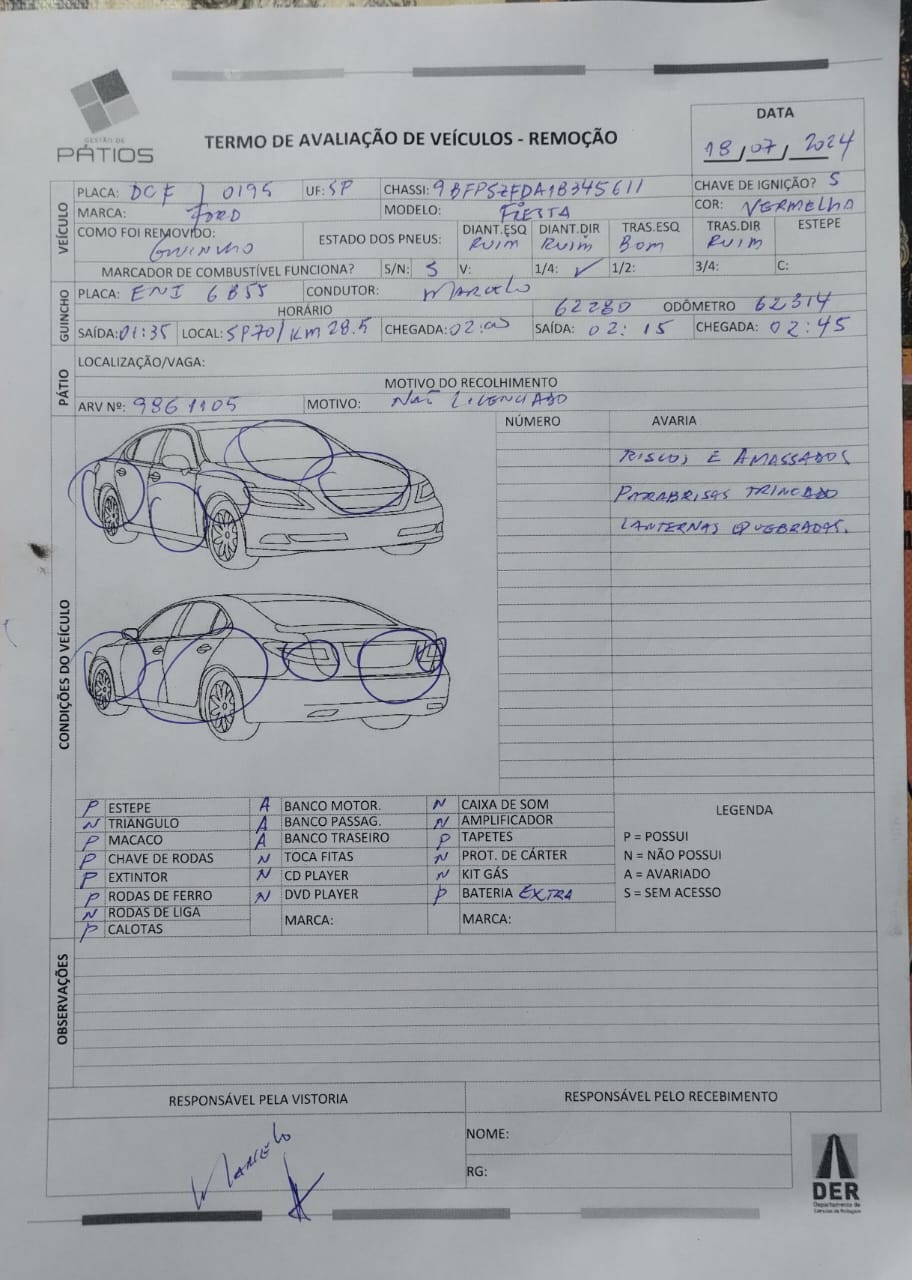 GESTÃO DE
PÁTIOS
TERMO DE AVALIAÇÃO DE VEÍCULOS - REMOÇÃO
DATA
18/07/2024
VEÍCULO
PLACA: DCF J 0195 UF: SP CHASSI: 9BFPSZFDA1B345611 CHAVE DE IGNIÇÃO? S
MARCA: FORD MODELO: FIESTA COR: VERMELHA
COMO FOI REMOVIDO: GUINCHO ESTADO DOS PNEUS: DIANT.ESQ RUIM DIANT.DIR RUIM TRAS.ESQ BOM TRAS.DIR RUIM ESTEPE
MARCADOR DE COMBUSTÍVEL FUNCIONA? S/N: S V: 1/4: ✓ 1/2: 3/4: C:
GUINCHO
PLACA: ENI 6855 CONDUTOR: MARCELO
HORÁRIO 62280 ODÔMETRO 62314
SAÍDA: 01:35 LOCAL: SP70/KM 28.5 CHEGADA: 02:00 SAÍDA: 02:15 CHEGADA: 02:45
PÁTIO
LOCALIZAÇÃO/VAGA:
MOTIVO DO RECOLHIMENTO
ARV Nº: 9861105 MOTIVO: NÃO LICENCIADO
CONDIÇÕES DO VEÍCULO
NÚMERO AVARIA
RISCOS E AMASSADOS
PARABRISAS TRINCADO
LANTERNAS QUEBRADAS.
P ESTEPE A BANCO MOTOR. N CAIXA DE SOM
N TRIANGULO A BANCO PASSAG. N AMPLIFICADOR
P MACACO A BANCO TRASEIRO P TAPETES
P CHAVE DE RODAS N TOCA FITAS N PROT. DE CÁRTER
P EXTINTOR N CD PLAYER N KIT GÁS
P RODAS DE FERRO N DVD PLAYER P BATERIA EXTRA
N RODAS DE LIGA MARCA: MARCA:
P CALOTAS
LEGENDA
P = POSSUI
N = NÃO POSSUI
A = AVARIADO
S = SEM ACESSO
OBSERVAÇÕES
RESPONSÁVEL PELA VISTORIA RESPONSÁVEL PELO RECEBIMENTO
MARCELO
NOME:
RG:
DER
Departamento de
Estradas de Rodagem